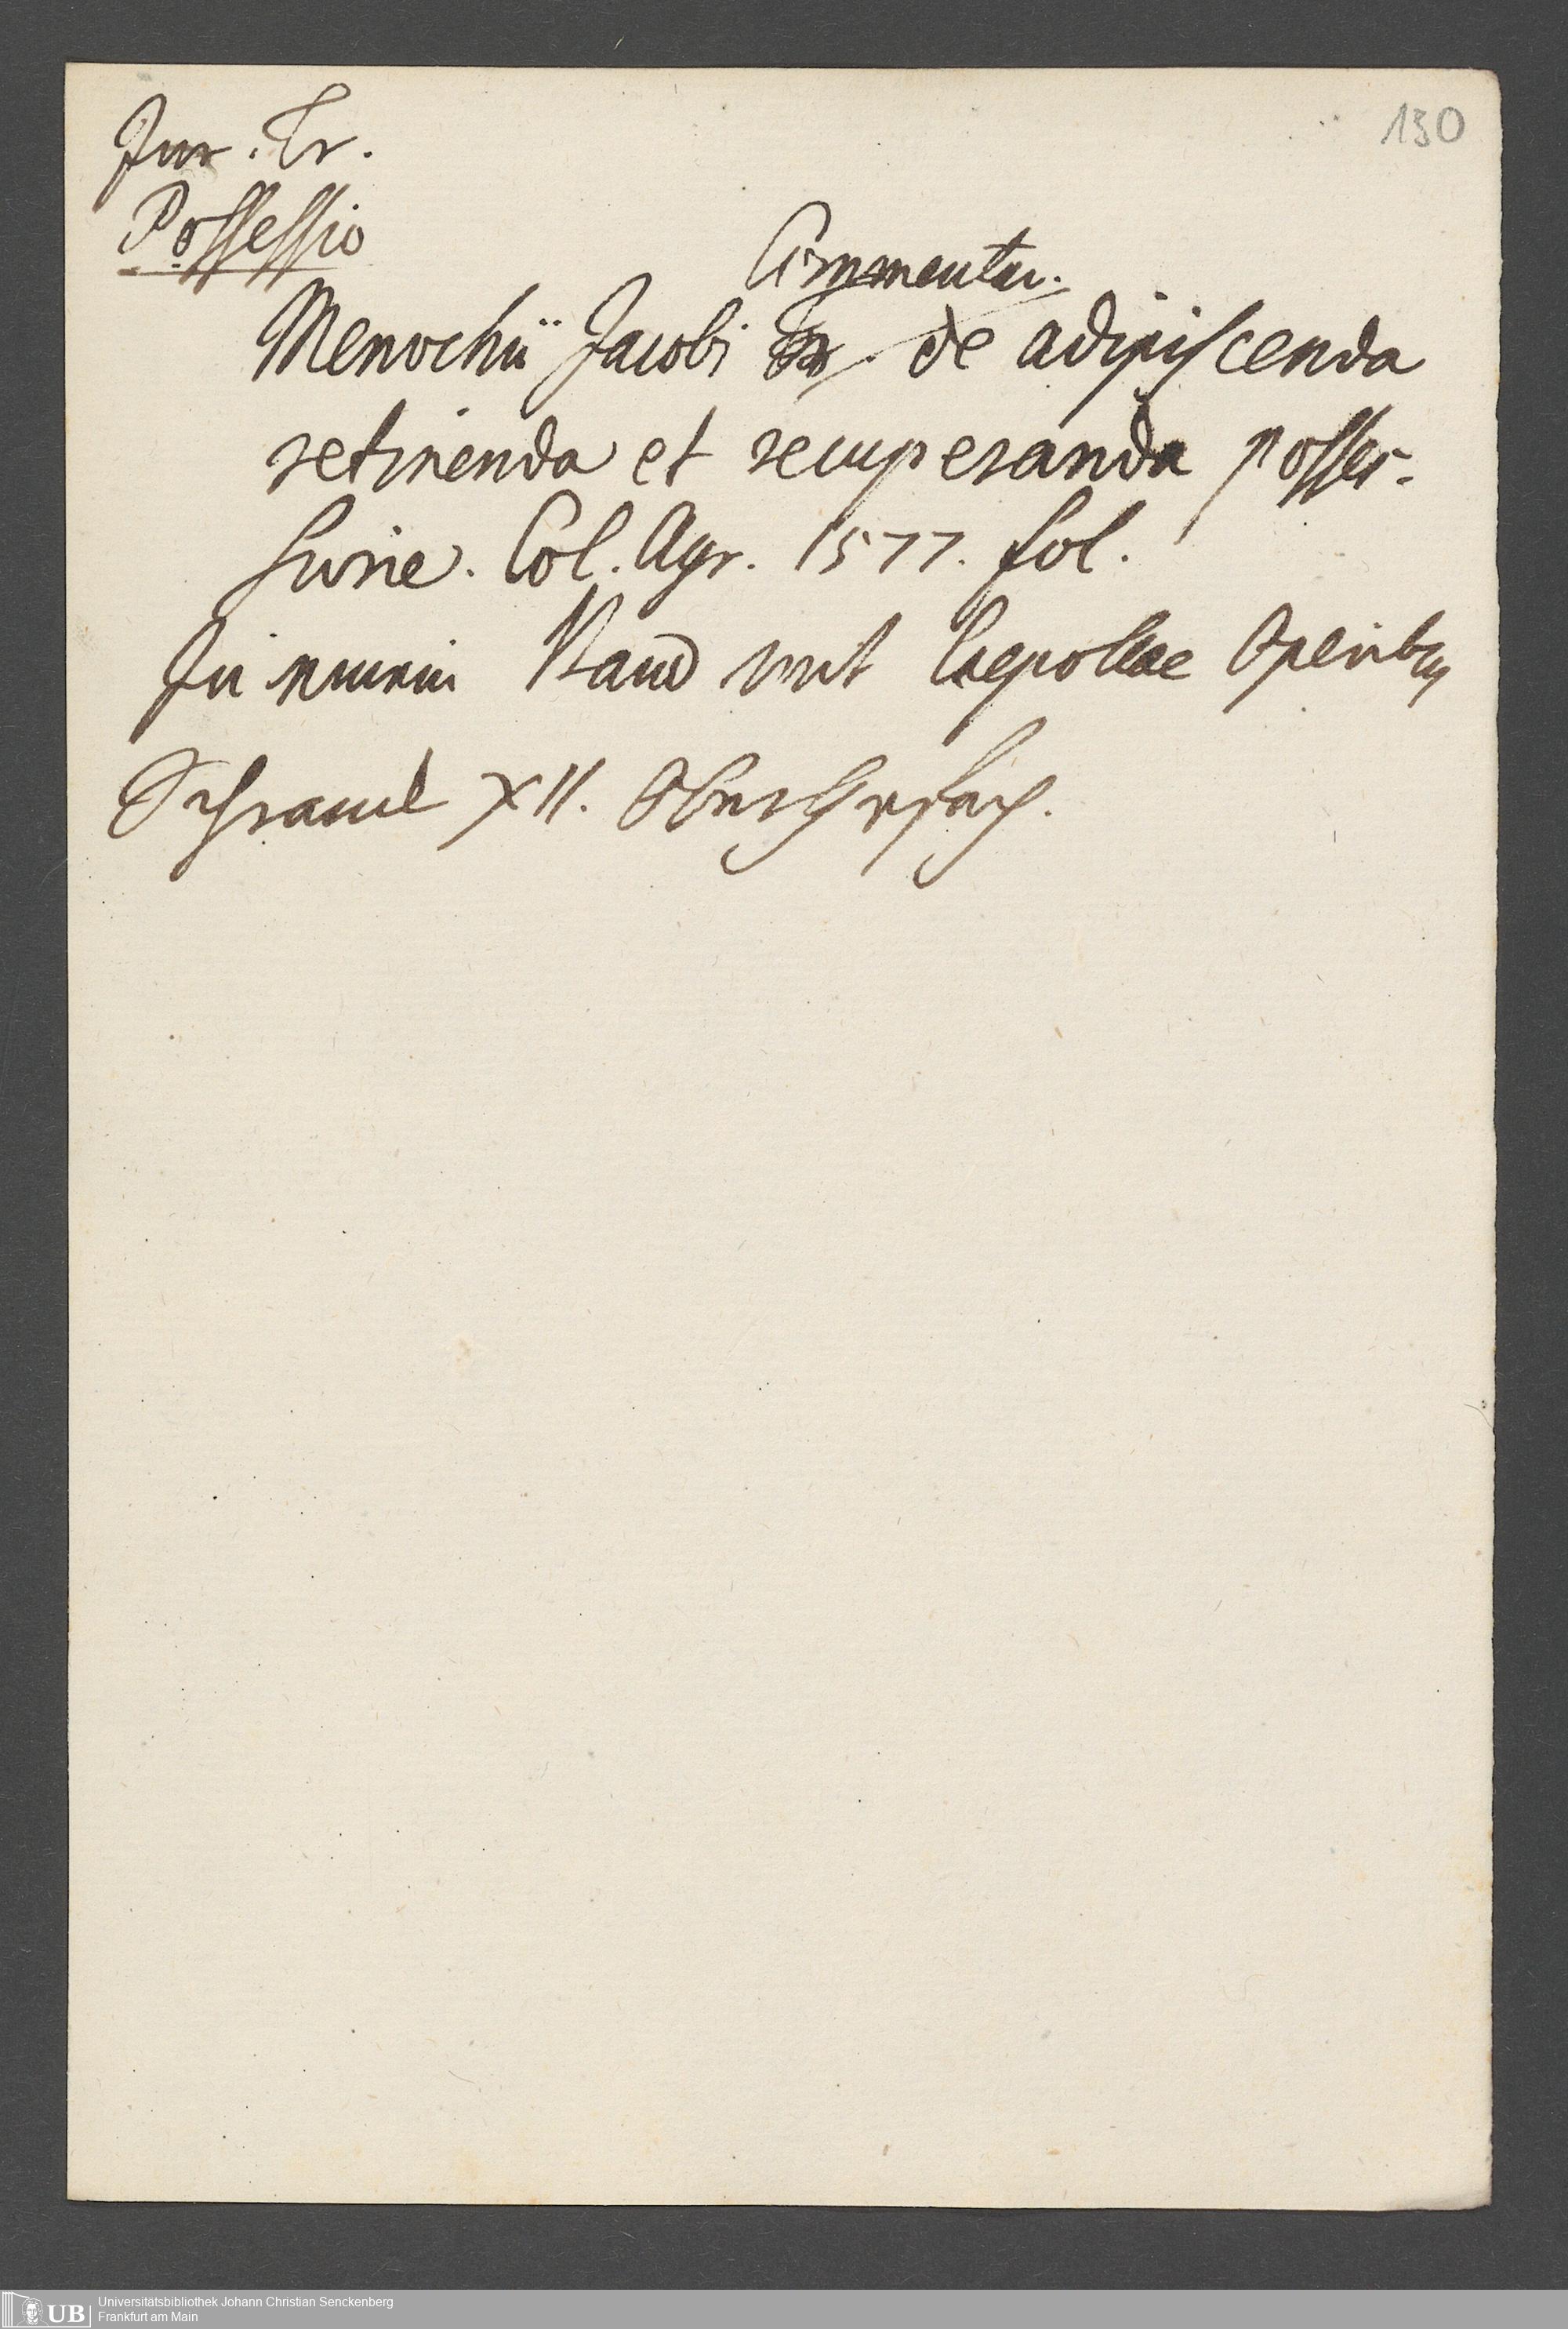 130
Jur. Tr.
Possessio
Commentar.
Menochii Jacobi Tr. de adipiscenda
retinenda et recuperanda posses-
sione. Col. Agr. 1577. fol.
In einem Band mit Caepollae Operibus
Schranck XII. Oberstes Fach.
Universitätsbibliothek Johann Christian Senckenberg
Frankfurt am Main
UB